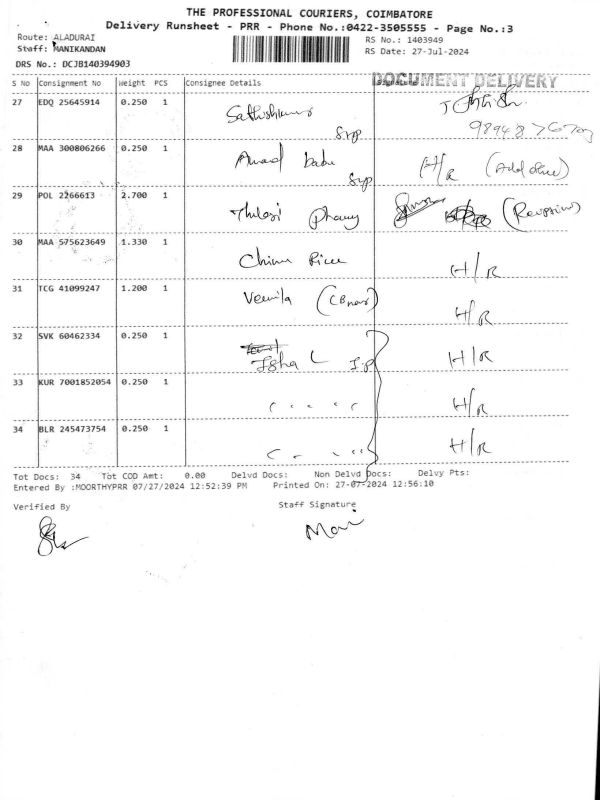 THE PROFESSIONAL COURIERS, COIMBATORE
Delivery Runsheet - PRR - Phone No.:0422-3505555 - Page No.:3
Route: ALADURAI
RS No.: 1403949
Staff: MANIKANDAN
RS Date: 27-Jul-2024
DRS No.: DCJB140394903
DOCUMENT DELIVERY
S No Consignment No Weight PCS Consignee Details Signature
27 EDQ 25645914 0.250 1
28 MAA 300806266 0.250 1 Anand babu H/R
29 POL 2266613 2.700 1 Thulasi
30 MAA 575623649 1.330 1 H/R
31 TCG 41099247 1.200 1 Vennila H/R
32 SVK 60462334 0.250 1 Isha L H/R
33 KUR 7001852054 0.250 1 H/R
34 BLR 245473754 0.250 1 H/R
Tot Docs: 34 Tot COD Amt: 0.00 Delvd Docs: Non Delvd Docs: Delvy Pts:
Entered By :MOORTHYPRR 07/27/2024 12:52:39 PM Printed On: 27-07-2024 12:56:10
Verified By Staff Signature
Mani